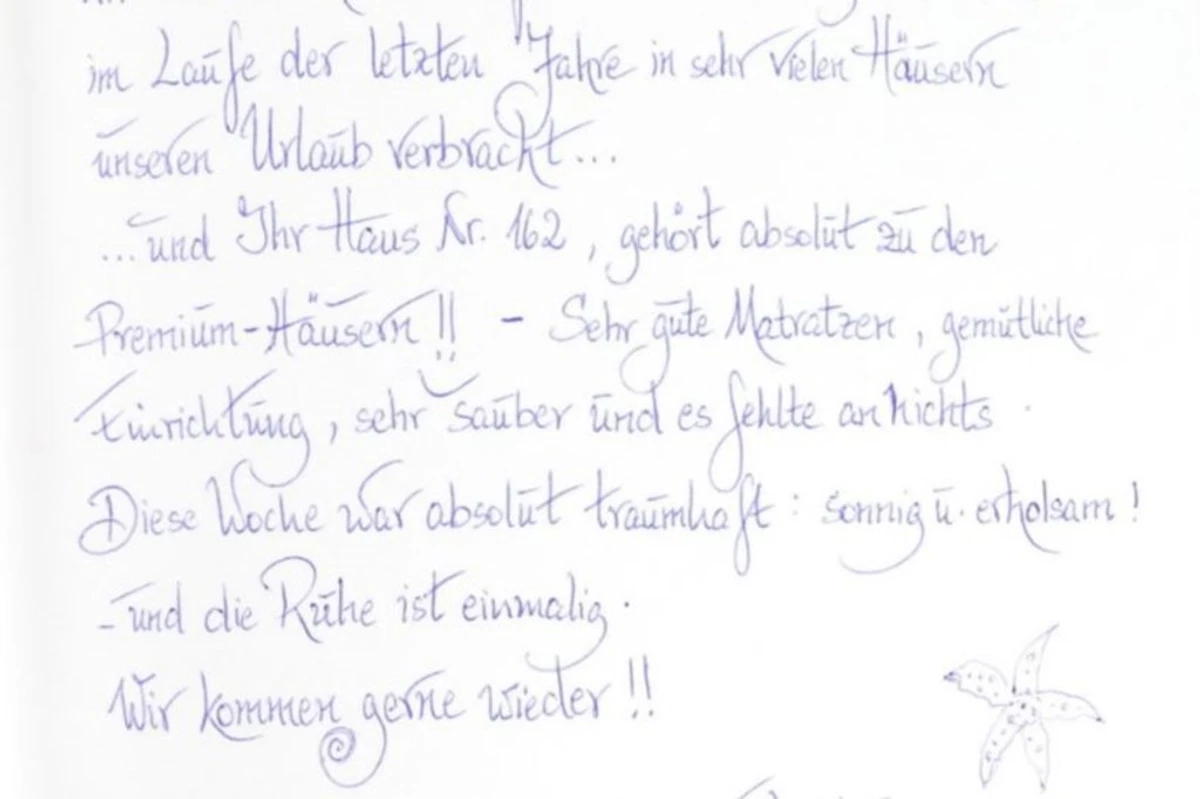 im Laufe der letzten Jahre in sehr vielen Häusern
unseren Urlaub verbracht...
...und Ihr Haus Nr. 162, gehört absolut zu den
Premium-Häusern!! - Sehr gute Matratzen, gemütliche
Einrichtung, sehr sauber und es fehlte an nichts.
Diese Woche war absolut traumhaft: sonnig u. erholsam!
- und die Ruhe ist einmalig.
Wir kommen gerne wieder!!